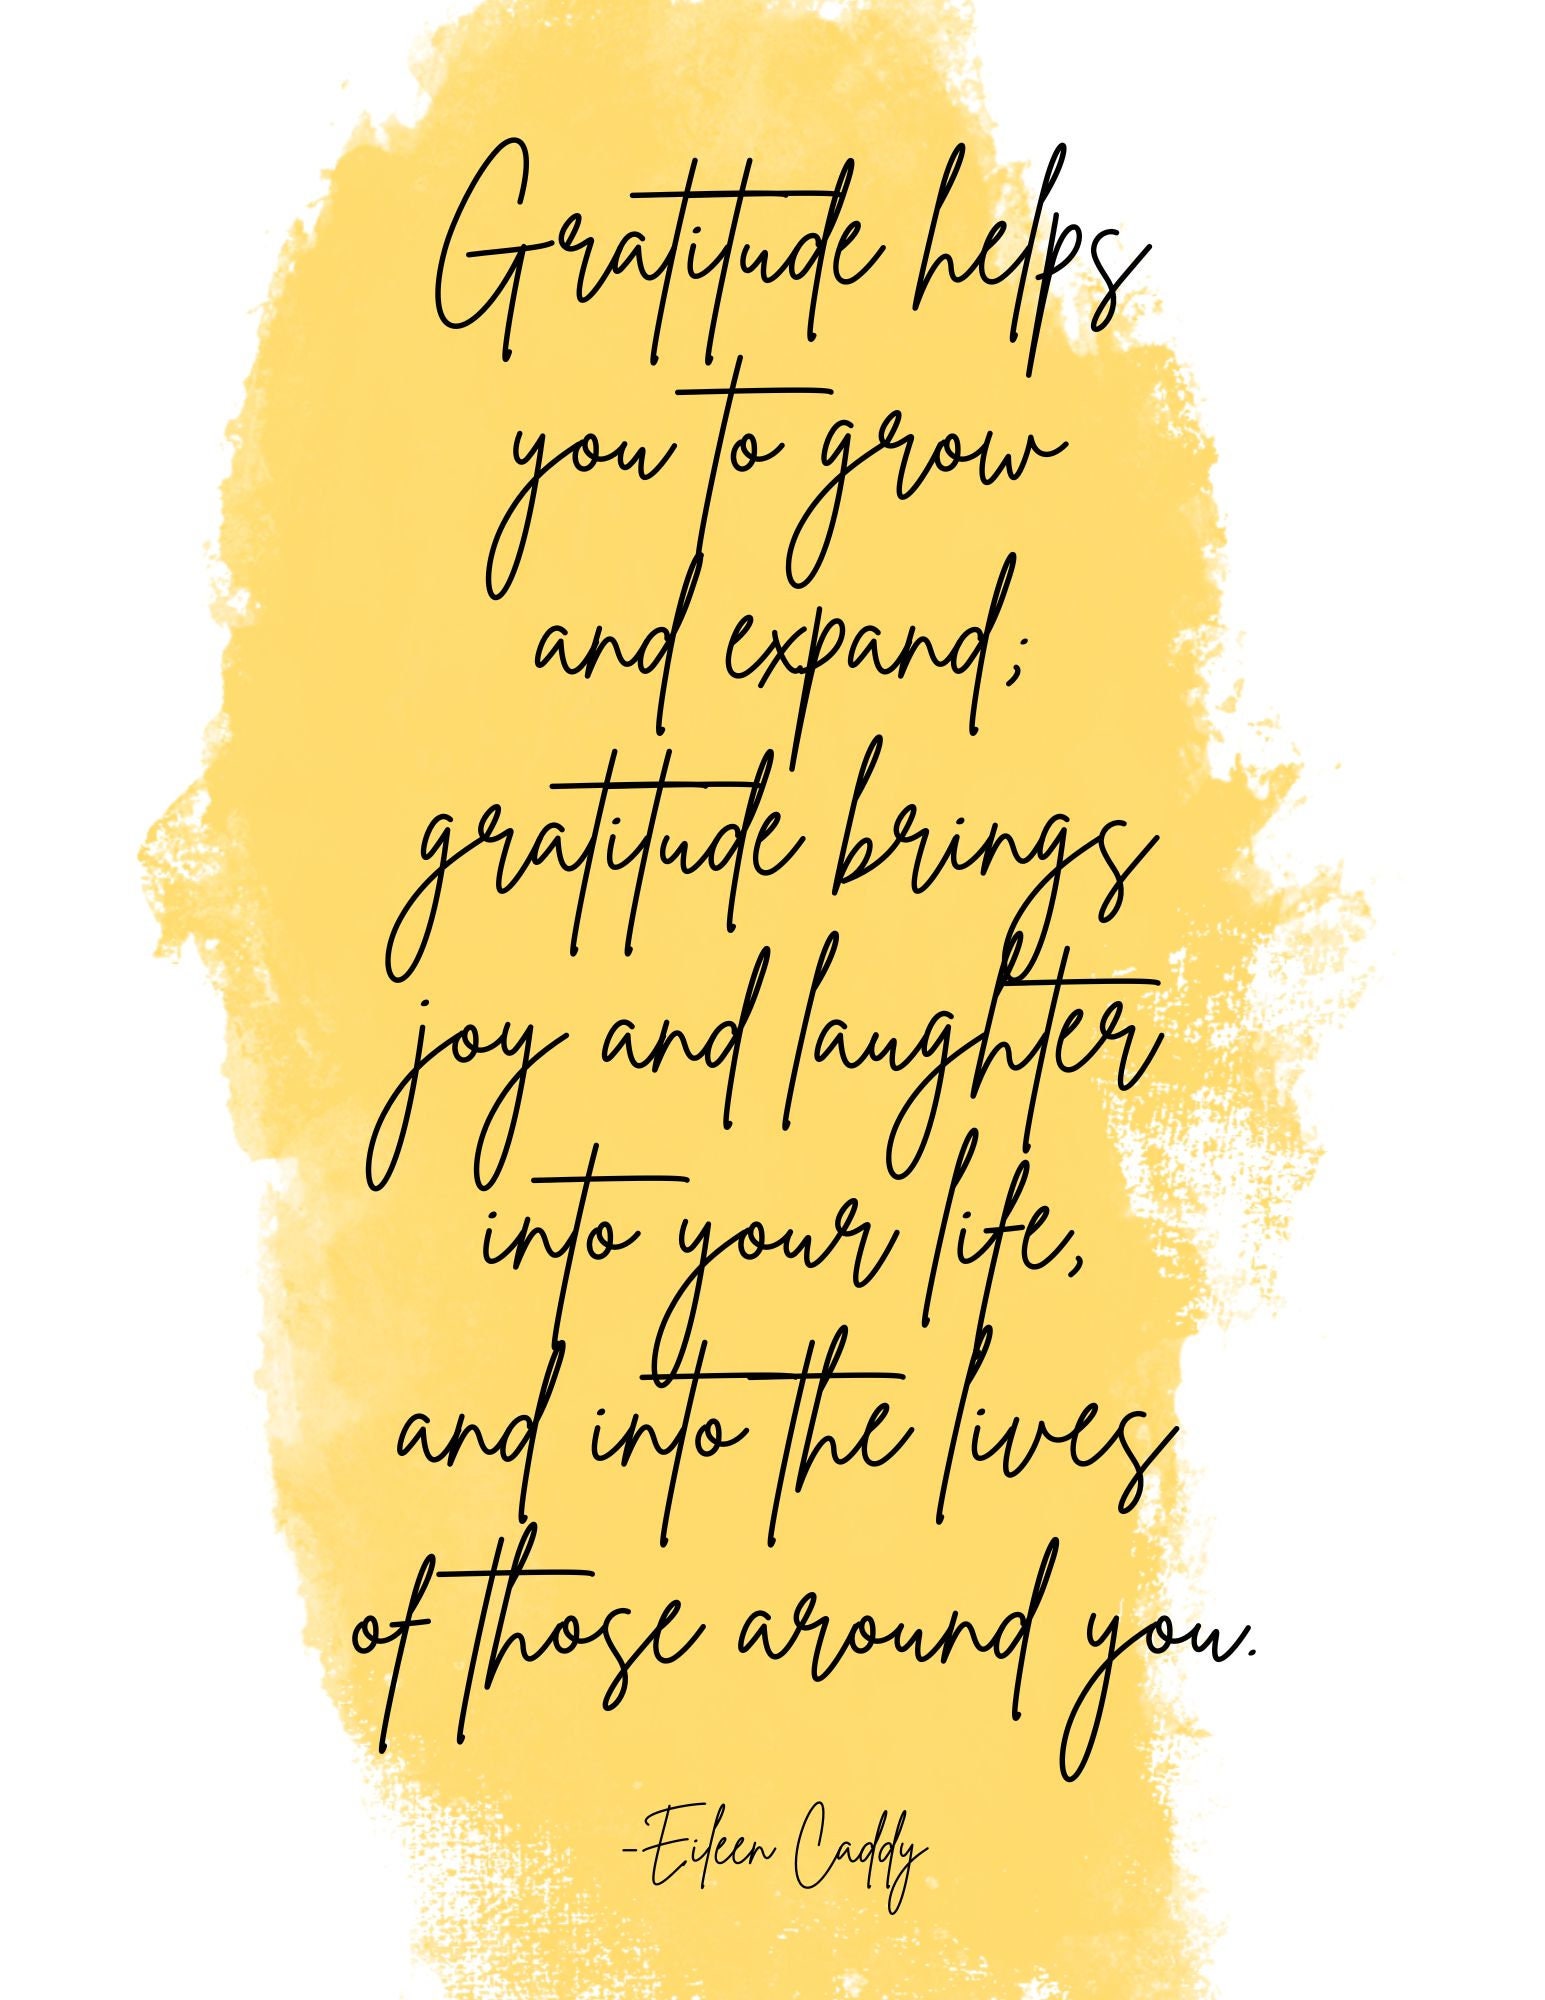 Gratitude helps
you to grow
and expand;
gratitude brings
joy and laughter
into your life,
and into the lives
of those around you.
-Eileen Caddy